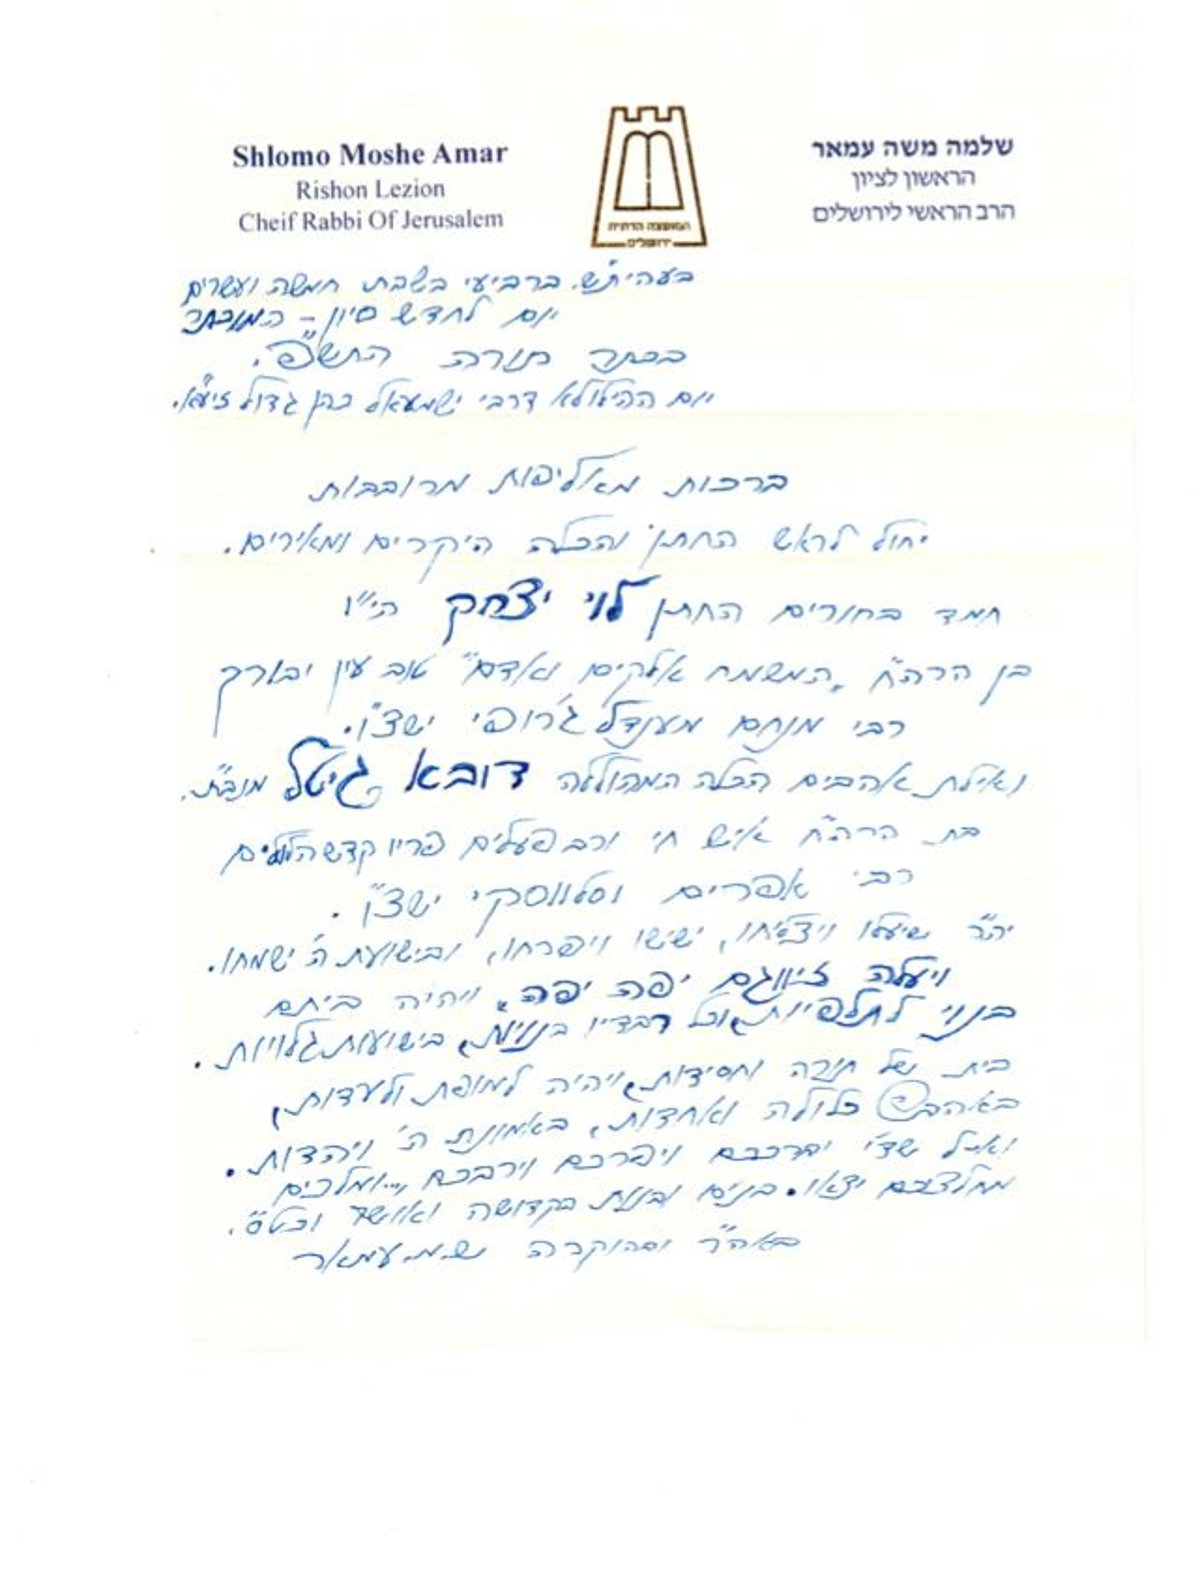 Shlomo Moshe Amar
Rishon Lezion
Cheif Rabbi Of Jerusalem
המועצה הדתית
ירושלים
שלמה משה עמאר
הראשון לציון
הרב הראשי לירושלים
בעהית"ש. ברביעי בשבת חמשה ועשרים
יום לחדש סיון - המוכתר
בכתר תורה התש"פ.
יום ההילולא דרבי ישמעאל כהן גדול זיע"א.
ברכות מאליפות מרובבות
יחול לראש החתן והכלה היקרים ומאירים.
חמד בחורים החתן לוי יצחק הי"ו
בן הרה"ח "המשמח אלקים ואדם" טוב עין יבורך
רבי מנחם מענדל ג'רופי ישצ"ו.
ואילת אהבים הכלה המהוללה דובא גיטל מנב"ת.
בת הרה"ח איש חי ורב פעלים פריו קדש הלולים
רבי אפרים וסלווסקי ישצ"ו.
יה"ר שיעלו ויצליחו, ישישו ויפרחו, ובישועת ה' ישמחו.
ויעלה זיווגם יפה יפה, ויהיה ביתם
בנוי לתלפיות, וכל רבדיו בנויות, בישועות גלויות.
בית של תורה וחסידות, ויהיה למופת ולעדות,
באהבה כלולה ואחדות, באמונת ה' ויהדות.
וא-ל שד-י יברככם ויפרכם וירבכם, ... ומלכים
מחלציכם יצאו. בנים ובנות בקדושה ואושר וכט"ס.
באה"ר וסהוקרה ש.מ. עמאר